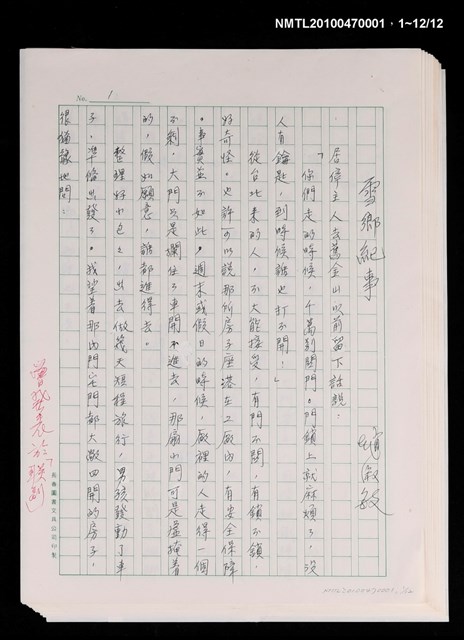 NMTL20100470001．1~12/12
No. 1
雪鄉紀事
趙淑敏
居停主人去舊金山以前留下話說：
「你們走的時候，千萬別關門。門鎖上就麻煩了，沒
人有鑰匙，到時候誰也打不開！」
從台北來的人，不大能接受，有門不關，有鎖不鎖，
好奇怪。也許可以說那所房子座落在工廠內，有安全保障
。事實並不如此，週末或假日的時候，廠裡的人走得一個
不剩，大門只是攔住了車開不進去，那扇小門可是虛掩著
的，假如願意，誰都進得去。
整理好小包包，出去做幾天短程旅行，男孩發動了車
子，準備出發了。我望著那內門屯門都大敞四開的房子，
很猶豫地問：
NMTL20100470001